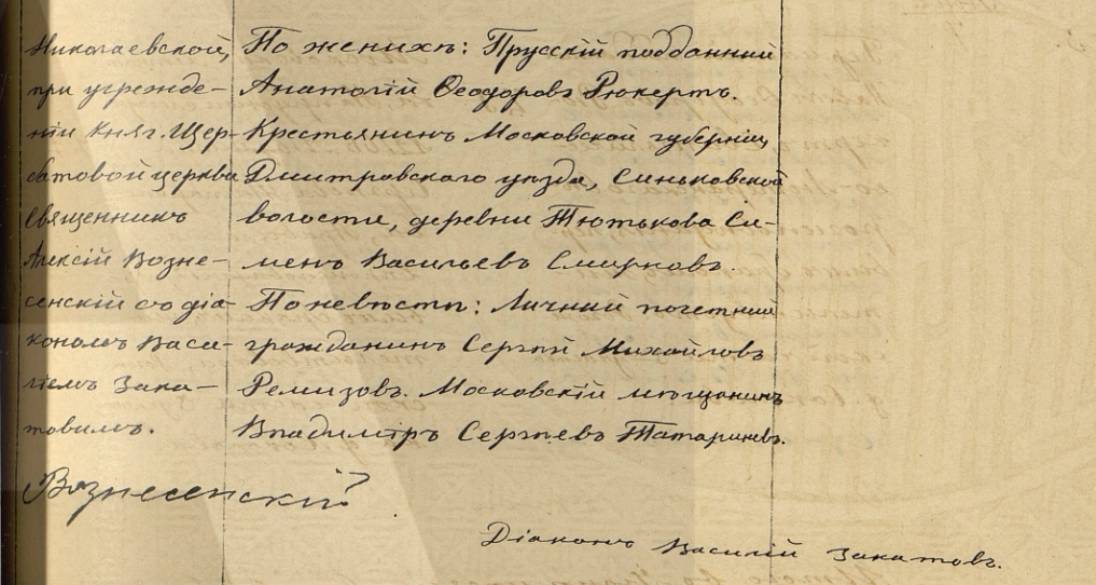 Николаевской,
при учрежде-
нiи Княг. Щер-
батовой церкви
Священникъ
Алексiй Возне-
сенскiй съ дiа-
кономъ Васи-
лiемъ Зака-
товымъ.
По женихѣ: Прусскiй подданный
Анатолiй Ѳеодоровъ Рюкертъ.
Крестьянинъ Московской губернiи,
Дмитровскаго уѣзда, Синьковской
волости, деревни Тютькова Си-
менъ Васильевъ Смирновъ.
По невѣстѣ: Личный почетный
гражданинъ Сергѣй Михайловъ
Ремизовъ. Московскiй мѣщанинъ
Владимiръ Сергѣевъ Татариновъ.
Вознесенскiй
Дiаконъ Василiй Закатовъ.